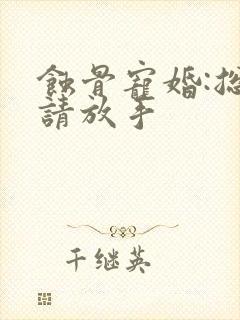 蝕骨寵婚:總
請放手
千继英